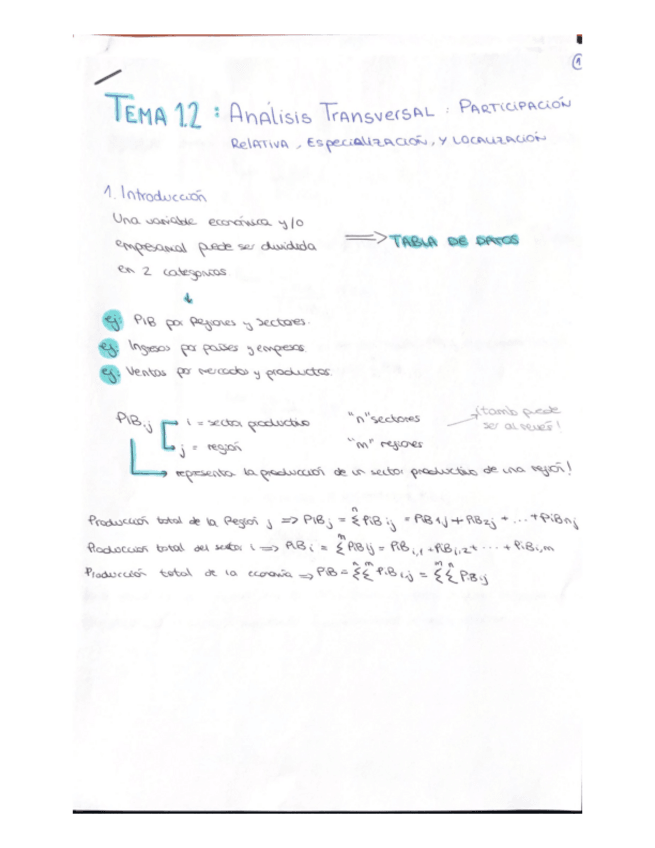 1
TEMA 1.2 : Análisis TRANSVERSAL : PARTICIPACIÓN
RELATIVA, ESPECIALIZACIÓN, Y LOCALIZACIÓN
1. Introducción
Una variable económica y/o
empresarial puede ser dividida
en 2 categorías
⇒ TABLA DE DATOS
↓
ej: PIB por Regiones y Sectores.
ej. Ingresos por países y empresas.
ej. Ventas por mercados y productos.
PIBij
i = sector productivo "n" sectores
j = región "m" regiones
¡tamb puede
ser al revés!
representa la producción de un sector productivo de una región!
Producción total de la Región j ⇒ PIBj = Σⁿ PIBij = PIB1j + PIB2j + ... + PIBnj
Producción total del sector i ⇒ PIBi = Σᵐ PIBij = PIBi,1 + PIBi,2 + ... + PIBi,m
Producción total de la economía ⇒ PIB = ΣⁿΣᵐ PIBi,j = ΣᵐΣⁿ PIBij